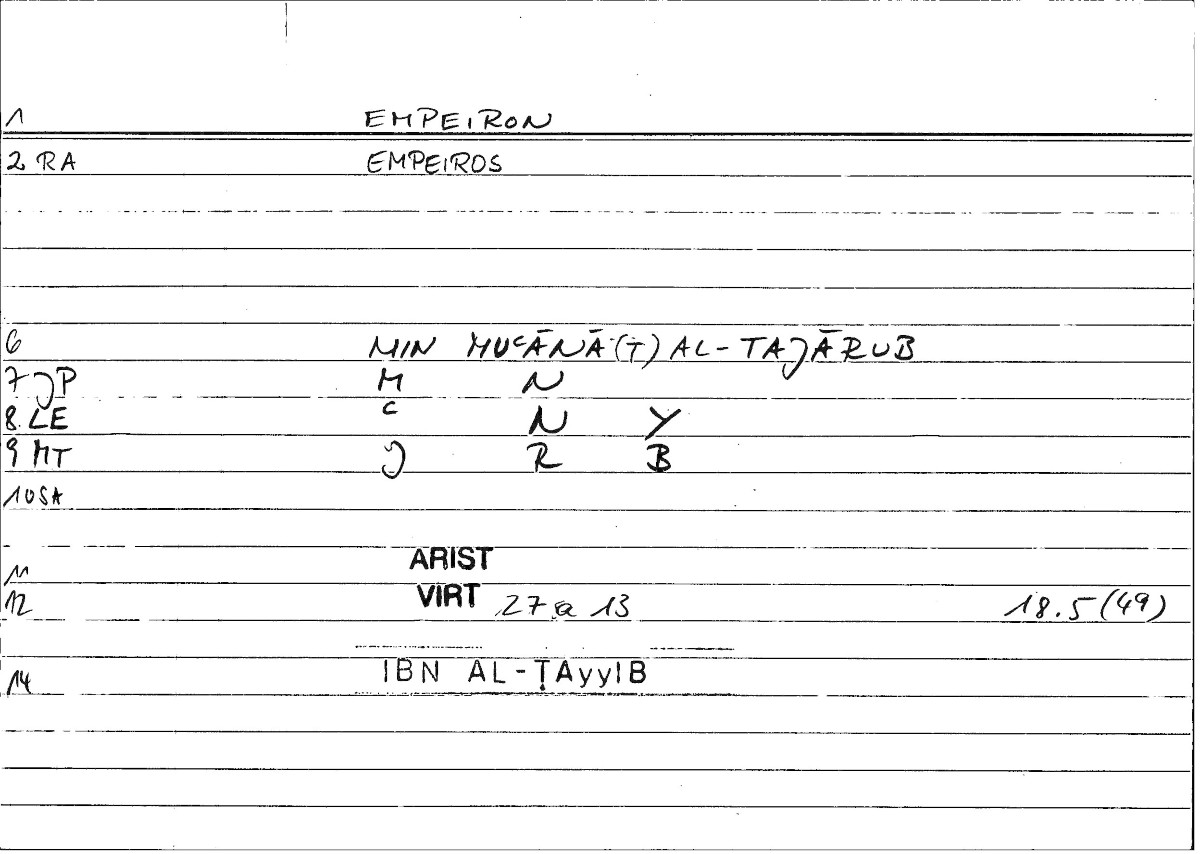 1 EMPEIRON
2 RA EMPEIROS
6 MIN MUʿĀNĀ(T) AL-TAJĀRUB
7 JP M N
8. LE ʿ N Y
9 MT J R B
10 SA
11 ARIST
12 VIRT 27 a 13 18.5 (49)
14 IBN AL-ṬAyyIB